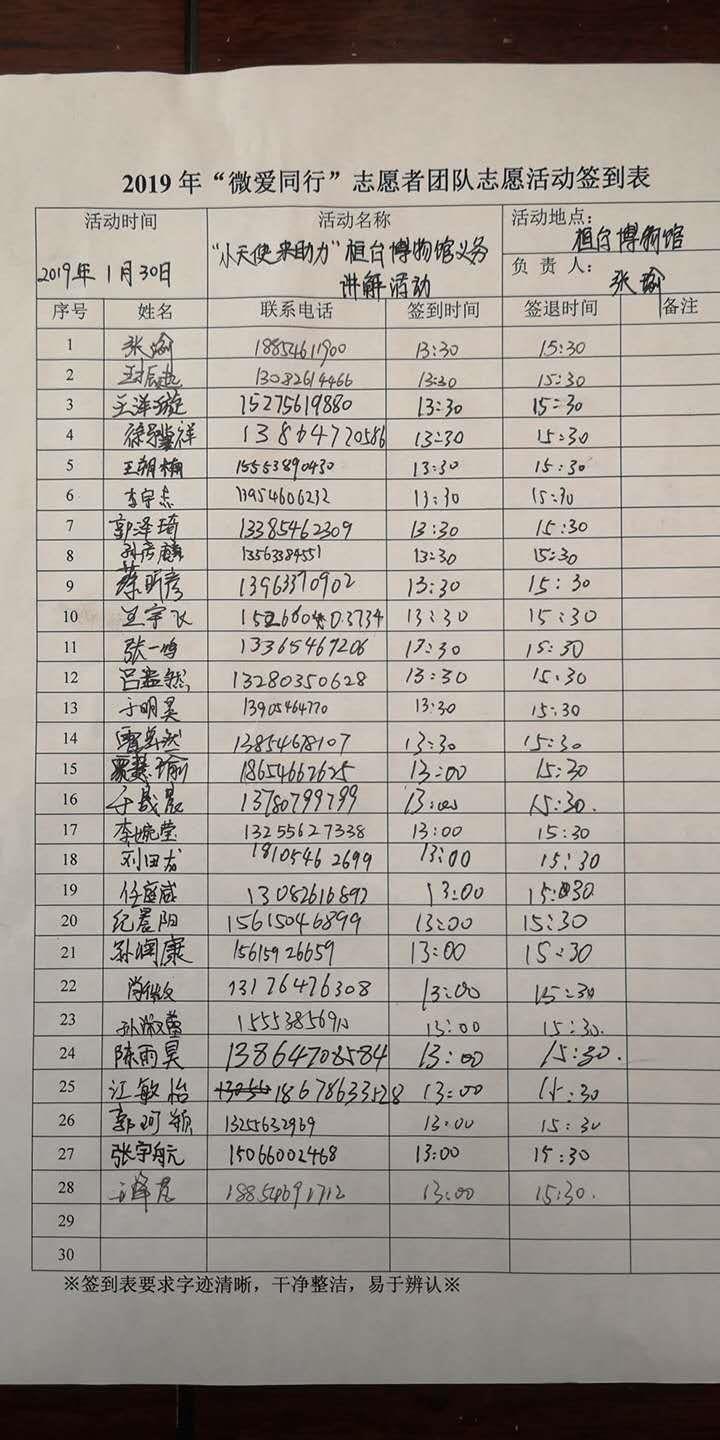 2019 年“微爱同行”志愿者团队志愿活动签到表
活动时间 活动名称 活动地点: 桓台博物馆
2019年 1月30日 “小天使来助力”桓台博物馆义务讲解活动 负 责 人: 张瑜
序号 姓名 联系电话 签到时间 签退时间 备注
1 张瑜 18854611900 13:30 15:30
2 13082614466 13:30 15:30
3 王泽璇 15275619880 13:30 15:30
4 13864770586 13:30 15:30
5 王朝梅 15553890430 13:30 15:30
6 李宇志 13954606232 13:30 15:30
7 郭泽琦 13385462309 13:30 15:30
8 孙彦麟 13563384551 13:30 15:30
9 蔡昕彦 13963370902 13:30 15:30
10 王宇飞 13:30 15:30
11 张一鸣 13365467206 13:30 15:30
12 吕孟然 13280350628 13:30 15:30
13 于明昊 13905464770 13:30 15:30
14 13854678107 13:30 15:30
15 18654662625 13:00 15:30
16 于晟晨 13780799799 13:00 15:30.
17 李婉莹 13255627338 13:00 15:30
18 刘田龙 1810546 2699 13:00 15:30
19 任庭威 13082616892 13:00 15:30
20 纪晨阳 15615046899 13:00 15:30
21 孙润康 1561592 6659 13:00 15:30
22 13176476308 13:00 15:30
23 孙淑蕾 13:00 15:30.
24 陈雨昊 13864708584 13:00 15:30.
25 江敏怡 18678633528 13:00 15:30
26 郭珂颖 13255632969 13:00 15:30
27 张宇航元 15066002468 13:00 15:30
28 18854691712 13:00 15:30.
29
30
※签到表要求字迹清晰，干净整洁，易于辨认※